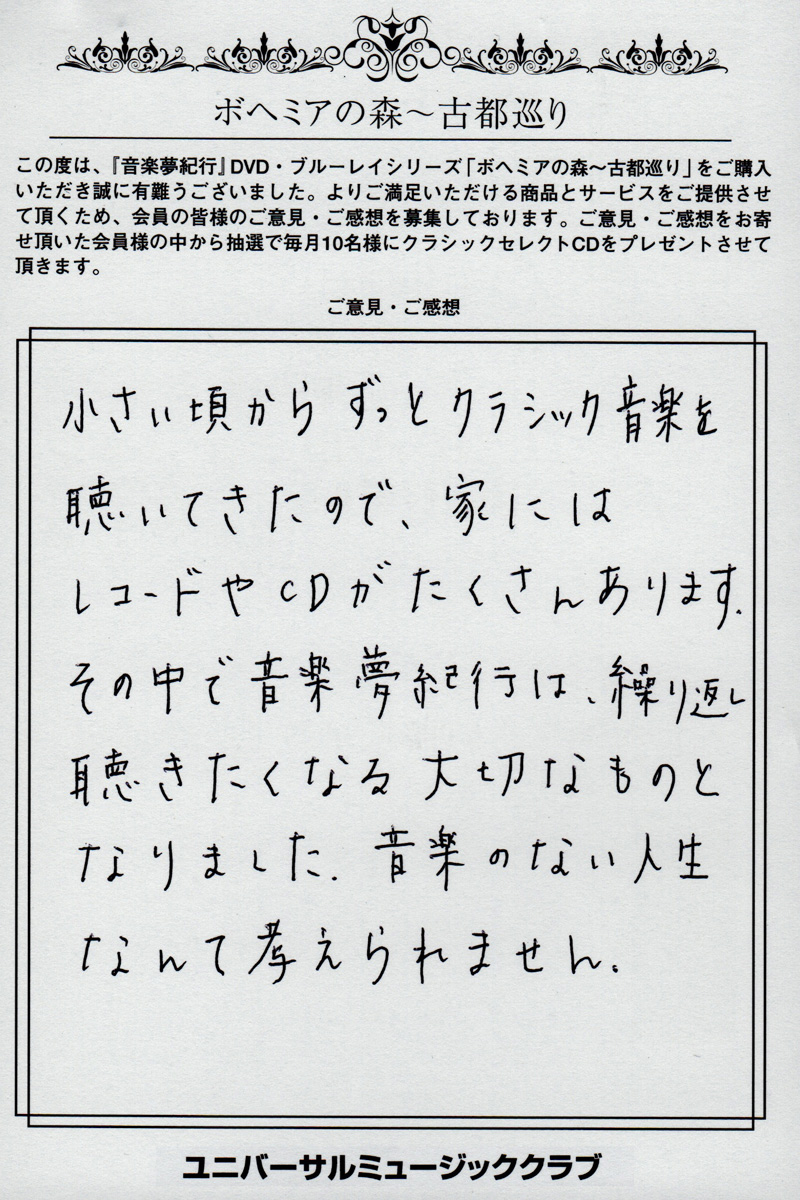 ボヘミアの森～古都巡り
この度は、『音楽夢紀行』DVD・ブルーレイシリーズ「ボヘミアの森～古都巡り」をご購入
いただき誠に有難うございました。よりご満足いただける商品とサービスをご提供させ
て頂くため、会員の皆様のご意見・ご感想を募集しております。ご意見・ご感想をお寄
せ頂いた会員様の中から抽選で毎月10名様にクラシックセレクトCDをプレゼントさせて
頂きます。
ご意見・ご感想
小さい頃からずっとクラシック音楽を
聴いてきたので、家には
レコードやCDがたくさんあります.
その中で音楽夢紀行は、繰り返し
聴きたくなる大切なものと
なりました.音楽のない人生
なんて考えられません.
ユニバーサルミュージッククラブ